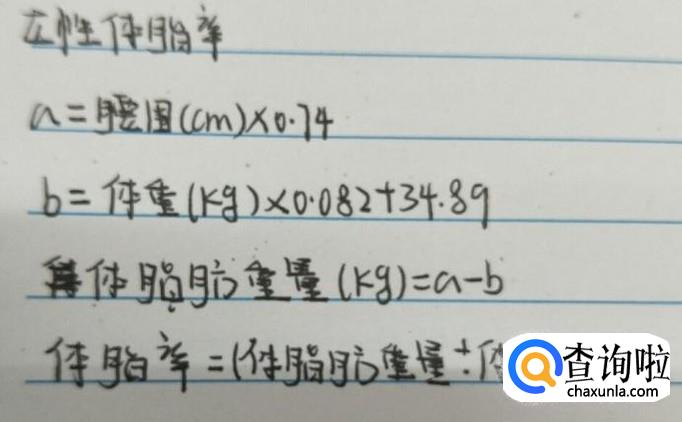 女性体脂率
a=腰围(cm)×0.74
b=体重(kg)×0.082+34.89
体脂肪重量(kg)=a-b
体脂率=(体脂肪重量÷体
查询啦
chaxunla.com